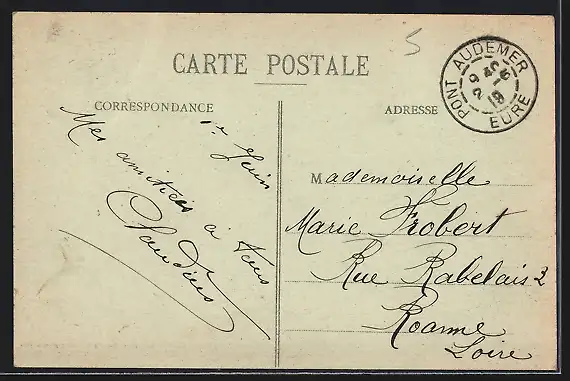 5
CARTE POSTALE
PONT AUDEMER
EURE
CORRESPONDANCE
ADRESSE
1er Juin
Mes amitiés à tous
Claudius
Mademoiselle
Marie Frobert
Rue Rabelais 2
Roanne
Loire